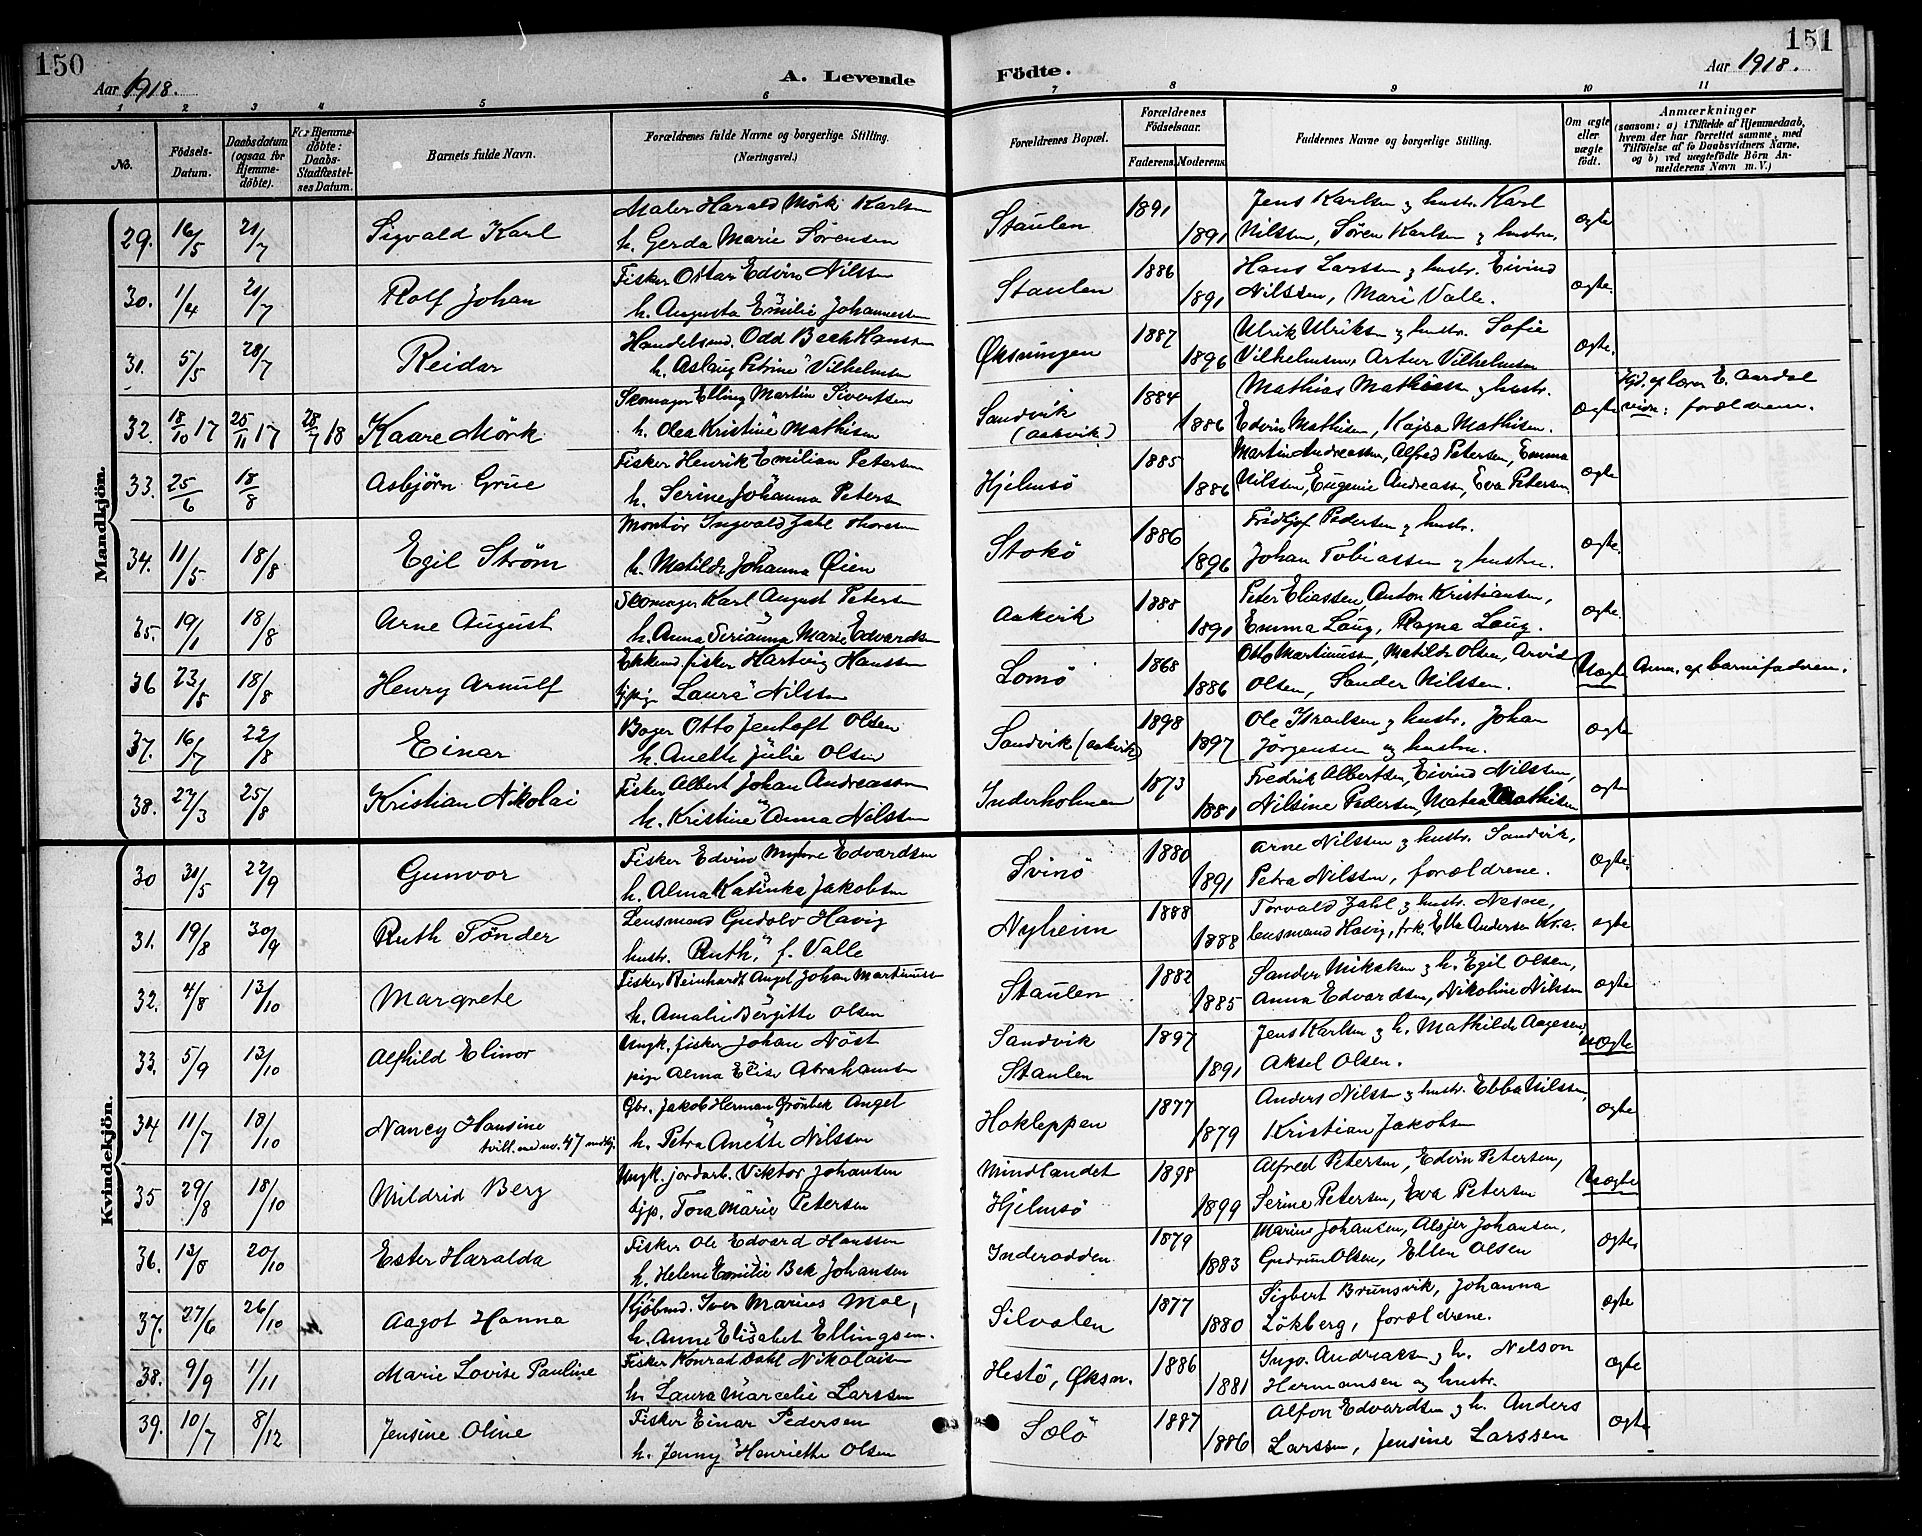 150
151
Aar 1918.
A. Levende Födte.
Aar 1918.
1 2 3 4 5 6 7 8 9 10 11
No.
Födsels-Datum.
Daabsdatum (ogsaa for Hjemme-döbte).
For Hjemme-döbte: Daabs-Stadfæstel-ses Datum.
Barnets fulde Navn.
Forældrenes fulde Navne og borgerlige Stilling. (Næringsvei.)
Forældrenes Bopæl.
Forældrenes Födselsaar.
Faderens. Moderens.
Faddernes Navne og borgerlige Stilling.
Om ægte eller uægte födt.
Anmærkninger
(saasom: a) i Tilfælde af Hjemmedaab, hvem der har forrettet samme, med Tilföielse af to Daabsvidners Navne, og b) ved uægtefödte Börn An-melderens Navn m. V.)
Mandkjön.
29. 16/5 21/7 Sigvald Karl Maler Harald Mörk Karlsen Staulen 1891 Jens Karlsen og hustr. Karl ægte
h. Gerda Marie Sörensen 1891 Nilssen, Sören Karlsen og hustru.
30. 1/4 21/7 Rolf Johan Fisker Ottar Edvin Nilssen Staulen 1886 Hans Larssen og hustr. Eivind ægte.
h. Augusta Emilie Johannessen 1891 Nilssen, Mari Valle.
31. 5/5 28/7 Reidar Handelsmd. Odd Bech Hanssen Øksningen 1887 Ulrik Ulriksen og hustr. Sofie ægte.
h. Aslaug Petrine Vilhelmsen 1896 Vilhelmsen, Artur Vilhelmsen
32. 18/10 17 25/11 17 28/7 18 Kaare Mörk Skomager Elling Martin Sivertsen Sandvik (Aakvik) 1884 Mathias Mathissen og hustr. ægte Hjd. af lærer E. Aardal
h. Olea Kristine Mathisen 1886 Edvin Mathisen, Kajsa Mathisen. vidn: forældrene.
33. 25/6 18/8 Asbjörn Grue Fisker Henrik Emilian Petersen Hjelmsö 1885 Martin Andreassen, Alfred Petersen, Emma ægte
h. Serine Johanna Peters 1886 Nilssen, Eugenie Andreassn, Eva Petersen.
34. 11/5 18/8 Egil Ström Montör Ingvald Zahl Thoresen Stokö 1886 Fridtjof Pedersen og hustr. ægte.
h. Matilde Johanna Øien 1896 Johan Tobiassen og hustru.
35. 19/1 18/8 Arne August Skomager Karl August Petersen Aakvik 1888 Peter Eliassen, Anton Kristiansen, ægte.
h. Anna Serianna Marie Edvardsen 1891 Emma Laug, Ragna Laug.
36 23/5 18/8 Henry Arnulf Enkemd. fisker Hartvig Hanssen Lomö 1868 Otto Martinussen, Matilde Olsen, Arvid Uægte Anm. af barnefaderen.
pige Laura Nilssen 1886 Olsen, Sander Nilssen.
37. 16/7 22/8 Einar Bager Otto Jentoft Olsen Sandvik (Aakvik) 1898 Ole Israelsen og hustr. Johan ægte
h. Anette Julie Olsen 1897 Jörgensen og hustru.
38. 27/3 25/8 Kristian Nikolai Fisker Albert Johan Andreassen Inderholmen 1873 Fredrik Albertsen, Eivind Nilssen, ægte
h. Kristine Anna Nilssen 1881 Nilsine Pedersen, Matea Mathisen
Kvindekjön.
30 31/5 22/9 Gunvor Fisker Edvin Myhre Edvardsen Svinö 1880 Arne Nilssen og hustr. Sandvik, ægte.
h. Alma Katinka Jakobsen 1891 Petra Nilssen, forældrene.
31. 19/8 30/9 Ruth Tönder Lensmand Gudolv Havig Nyheim 1888 Torvald Zahl og hustr. Nesne, ægte
hustr. Ruth, f. Valle 1888 lensmand Havig, frk. Ella Andersen Kr.a.
32. 4/8 13/10 Margrete Fisker Reinhardt Angel Johan Martinussen Staulen 1882 Sander Mikalsen og h. Egil Olsen, ægte
h. Amalie Bergitte Olsen 1885 Anna Edvardsen, Nikoline Nilssen
33. 5/9 13/10 Alfhild Elinor Ungk. fisker Johan Nöst Sandvik 1897 Jens Karlsen og h. Mathilde Aagesen, uægte
pige Alma Elise Abrahamsen Staulen 1891 Aksel Olsen.
34 11/7 18/10 Nancy Hansine Gbr. Jakob Herman Grönbek Angel Hakleppen 1877 Anders Nilssen og hustr. Ebba Nilssen, ægte
tvill. med no. 47 mdkj. h. Petra Anette Nilssen 1879 Kristian Jakobsen
35 29/8 18/10 Mildrid Berg Ungk. jordarb. Viktor Johansen Mindlandet 1898 Alfred Petersen, Edvin Petersen, Uægte
tjp. Tora Marie Petersen Hjelmsö 1899 Serine Petersen, Eva Petersen
36. 13/8 20/10 Ester Haralda Fisker Ole Edvard Hanssen Inderodden 1879 Marine Johansen, Alsjer Johansen, ægte
h. Helene Emilie Bek Johansen 1883 Gudrun Olsen, Ellen Olsen
37. 27/6 26/10 Aagot Hanna Kjöbmd. Iver Marius Moe, Silvalen 1877 Sigbert Brunsvik, Johanna ægte
h. Anne Elisabet Ellingsen. 1880 Lökberg, forældrene.
38. 9/9 1/11 Marie Lovise Pauline Fisker Konrad Dahl Nikolaisen Hestö, Øksn. 1886 Ingv. Andreassen og h. Nelson ægte
h. Laura Marcelie Larssen 1881 Hermansen og hustr.
39. 10/7 8/12 Jensine Oline Fisker Einar Pedersen Solö 1887 Alfon Edvardsen og h. Anders ægte
h. Jenny Henriette Olsen 1886 Larssen, Jensine Larssen